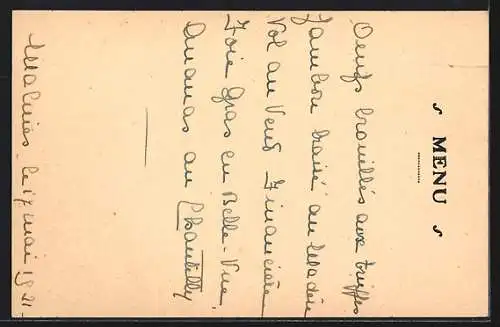 MENU
Oeufs brouillés aux truffes
Jambon braisé au Madère
Vol au Vent Financière
Foie Gras en Belle-Vue
Ananas au Chantilly
Malines, le 17 mai 1921